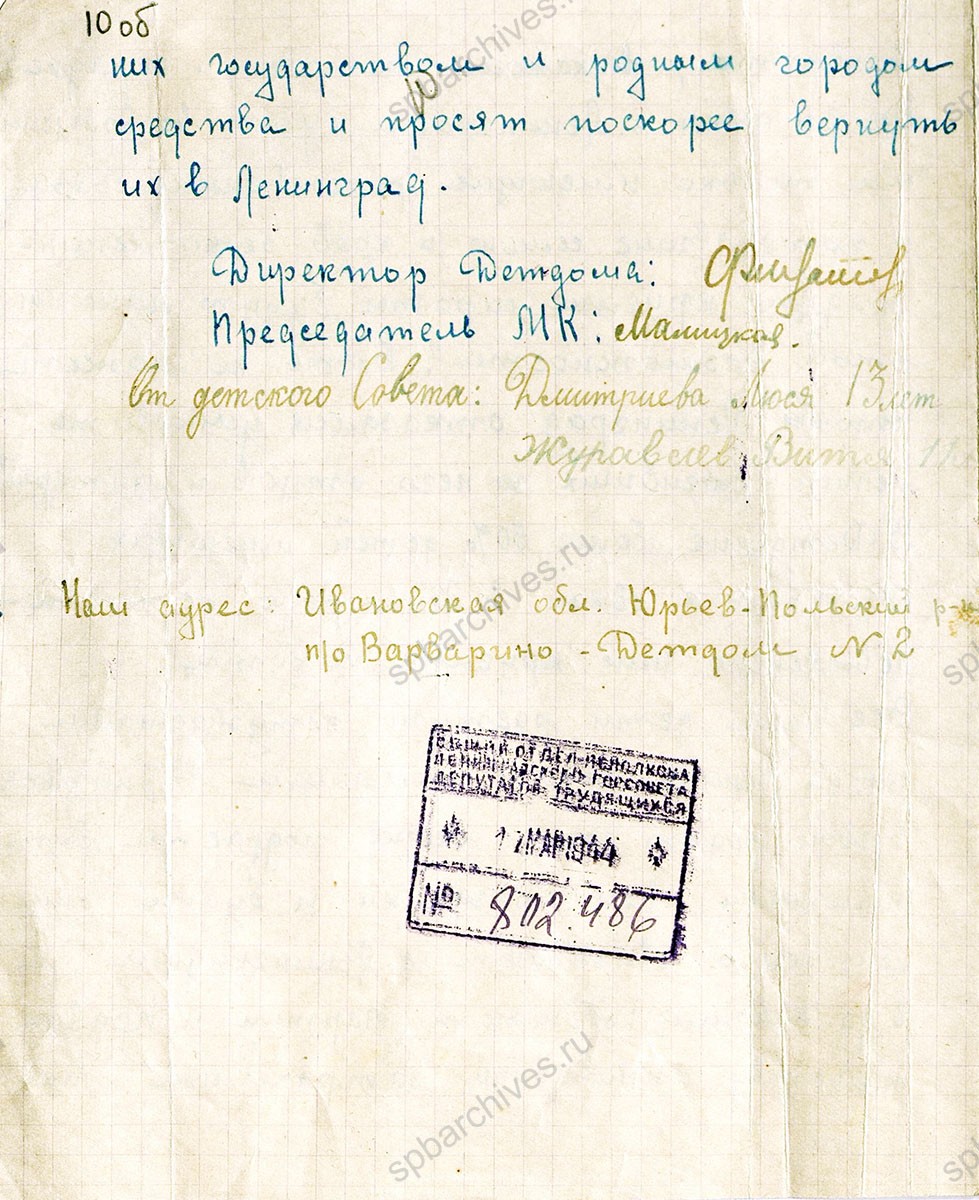 10 об
них государством и родным городом
средства и просят поскорее вернуть
их в Ленинград.
Директор Детдома:
Председатель МК: Малицкая.
От детского Совета: Дмитриева Люся 13 лет
Журавлев Витя
Наш адрес: Ивановская обл. Юрьев-Польский р-н
п/о Варварино - Детдом N 2
ОБЩИЙ ОТДЕЛ ИСПОЛКОМА
ЛЕНИНГРАДСКОГО ГОРСОВЕТА
ДЕПУТАТОВ ТРУДЯЩИХСЯ
№ 802.486
spbarchives.ru
spbarchives.ru
spbarchives.ru